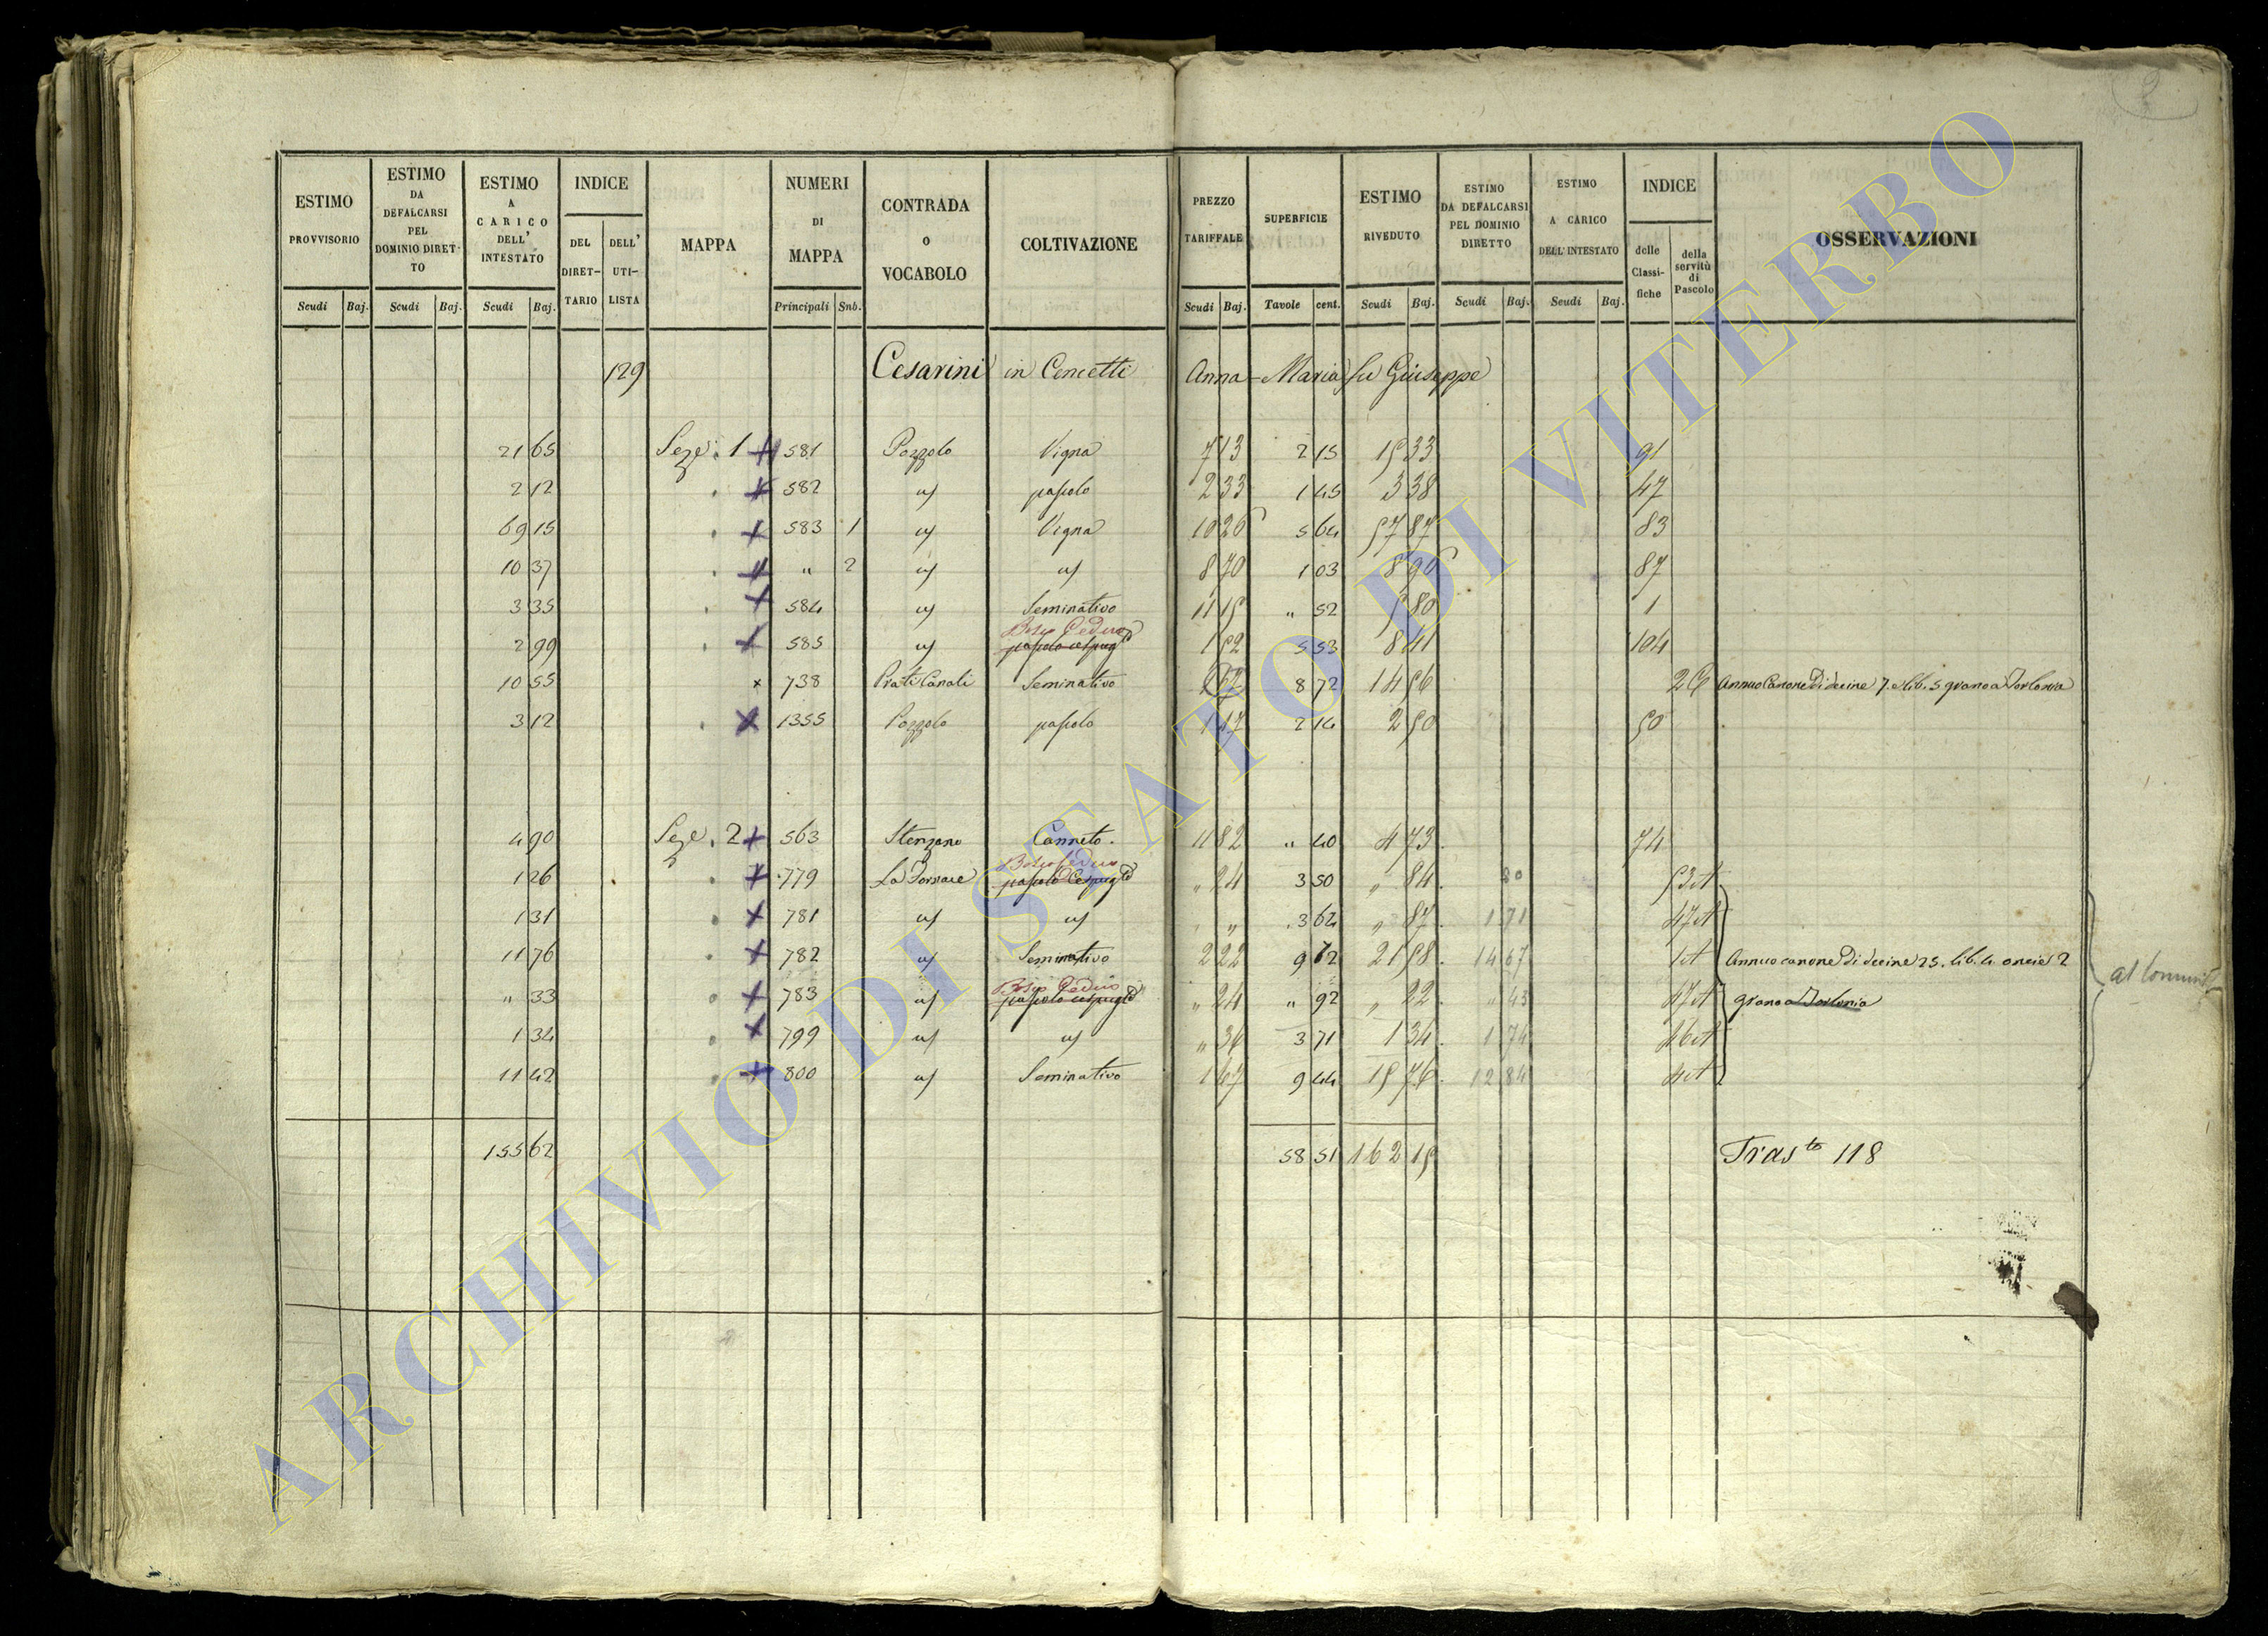 ESTIMO PROVVISORIO | ESTIMO DA DEFALCARSI PEL DOMINIO DIRETTO | ESTIMO A CARICO DELL' INTESTATO | INDICE DEL DIRETTARIO | DELL' UTILISTA | MAPPA | NUMERI DI MAPPA | CONTRADA O VOCABOLO | COLTIVAZIONE | PREZZO TARIFFALE | SUPERFICIE | ESTIMO RIVEDUTO | ESTIMO DA DEFALCARSI PEL DOMINIO DIRETTO | ESTIMO A CARICO DELL'INTESTATO | INDICE delle Classifiche | della servitù di Pascolo | OSSERVAZIONI
Scudi Baj. Scudi Baj. Scudi Baj. Principali Snb. Scudi Baj. Tavole cent. Scudi Baj. Scudi Baj. Scudi Baj.
129 Cesarini in Cencetti Anna-Maria fu Giuseppe
21 65 Seze. 1 581 Pozzolo Vigna 7 13 2 15 15 33 91
2 12 582 " pascolo 2 33 1 45 3 38 47
69 15 583 1 " Vigna 10 26 5 64 57 87 83
10 37 " 2 " " 8 70 1 03 8 96 87
3 35 584 " Seminativo 11 15 " 52 5 80 1
Bosco Ceduo
2 99 585 " pascolo cespugto 1 52 5 53 8 41 104
10 55 738 Prati Canali Seminativo 1 67 8 72 14 56 26 Annuo Canone di decine 7. e lib. 5 grano a Torlonia
3 12 1355 Pozzolo pascolo 1 17 2 14 2 50 50
4 90 Seze. 2 563 Stenzano Canneto. 11 82 " 40 4 73 74
Bosco Ceduo
1 26 779 La Fornace pascolo Cespugto " 24 3 50 " 84 80 53 et
1 31 781 " " " " 3 64 " 87 1 71 47 et
11 76 782 " Seminativo 2 22 9 72 21 58 14 67 1 et Annuo canone di decine 25. lib. 4. oncie 2
Bosco Ceduo
" 33 783 " pascolo cespugto " 24 " 92 " 22 " 43 47 et grano a Torlonia
1 34 799 " " " 36 3 71 1 34 1 74 46 et
11 42 800 " Seminativo 1 67 9 44 15 76 12 84 4 et
155 62 58 51 162 15 Trasto 118
ARCHIVIO DI STATO DI VITERBO